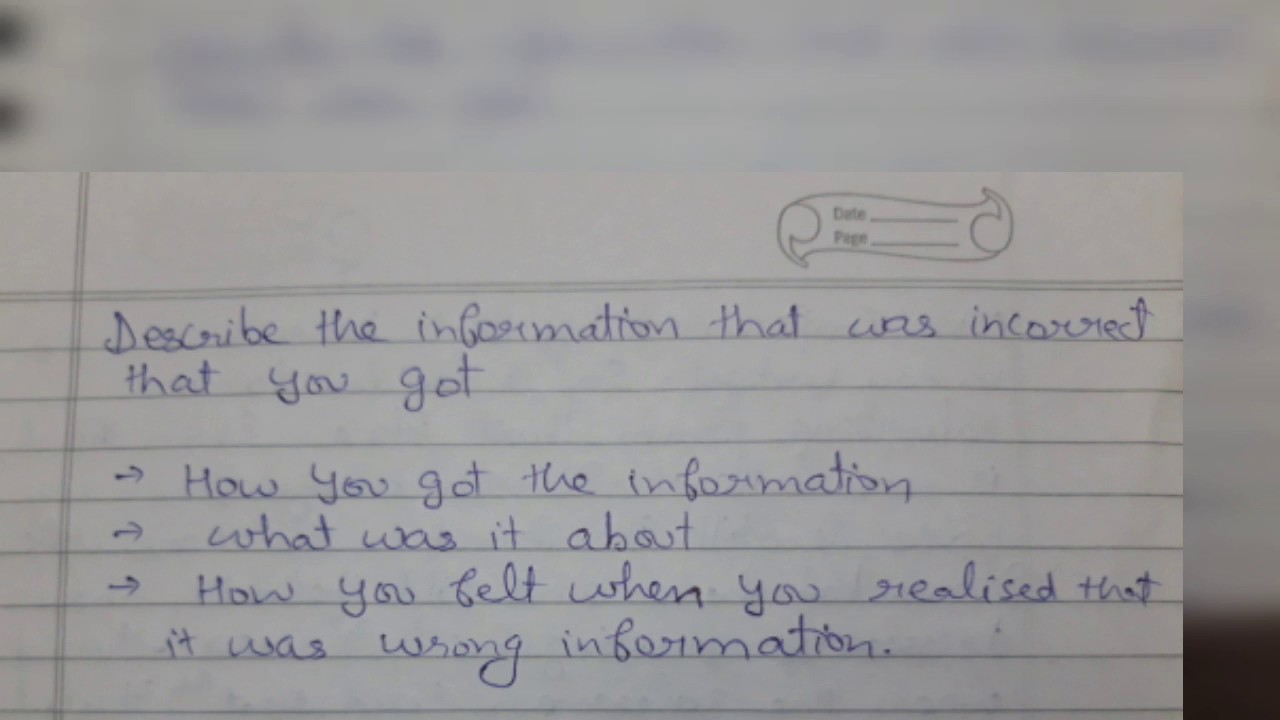 Date
Page
Describe the information that was incorrect
that you got
→ How you got the information
→ what was it about
→ How you felt when you realised that
it was wrong information.